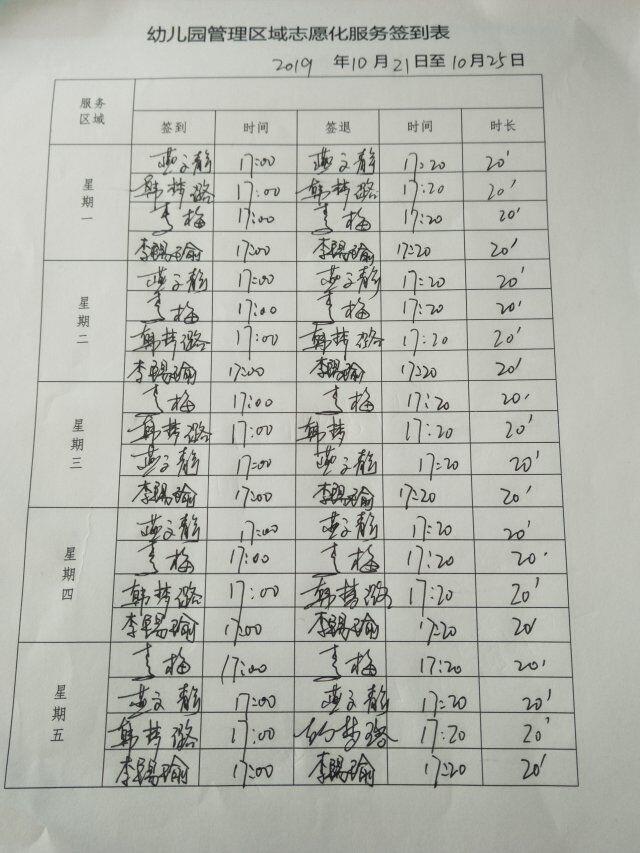 幼儿园管理区域志愿化服务签到表
2019 年10月21日至10月25日
服务区域
签到 时间 签退 时间 时长
星期一
燕文静 17:00 燕文静 17:20 20'
韩梦璐 17:00 韩梦璐 17:20 20'
梅 17:00 梅 17:20 20'
李赐瑜 17:00 李赐瑜 17:20 20'
星期二
燕文静 17:00 燕文静 17:20 20'
梅 17:00 梅 17:20 20'
韩梦璐 17:00 韩梦璐 17:20 20'
李赐瑜 17:00 李赐瑜 17:20 20'
星期三
梅 17:00 梅 17:20 20'
韩梦璐 17:00 韩梦 17:20 20'
燕文静 17:00 燕文静 17:20 20'
李赐瑜 17:00 李赐瑜 17:20 20'
星期四
燕文静 17:00 燕文静 17:20 20'
梅 17:00 梅 17:20 20'
韩梦璐 17:00 韩梦璐 17:20 20'
李赐瑜 17:00 李赐瑜 17:20 20'
星期五
梅 17:00 梅 17:20 20'
燕文静 17:00 燕文静 17:20 20'
韩梦璐 17:00 梦璐 17:20 20'
李赐瑜 17:00 李赐瑜 17:20 20'